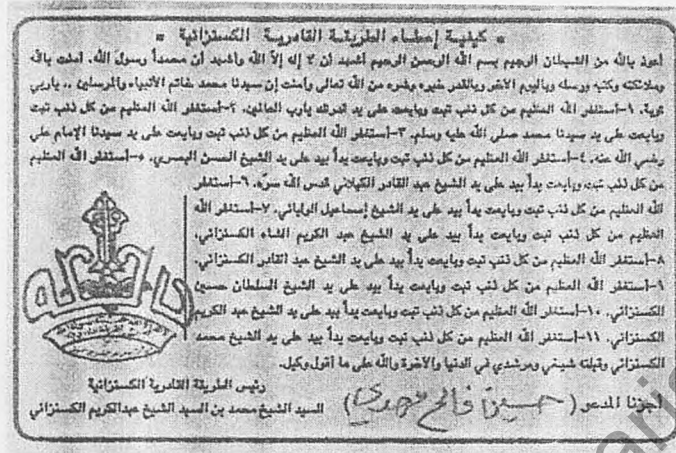 * كيفية إعطاء الطريقة القادرية الكسنزانية *
أعوذ بالله من الشيطان الرجيم بسم الله الرحمن الرحيم أشهد أن لا إله إلاّ الله وأشهد أن محمداً رسول الله. آمنت بالله
وملائكته وكتبه ورسله وباليوم الآخر وبالقدر خيره وشره من الله تعالى وآمنت إن سيدنا محمد خاتم الأنبياء والمرسلين .. ياربي
توبة. ١-أستغفر الله العظيم من كل ذنب تبت وبايعت على يد قدرتك يارب العالمين. ٢-أستغفر الله العظيم من كل ذنب تبت
وبايعت على يد سيدنا محمد صلى الله عليه وسلم. ٣-أستغفر الله العظيم من كل ذنب تبت وبايعت على يد سيدنا الإمام علي
رضي الله عنه. ٤-أستغفر الله العظيم من كل ذنب تبت وبايعت يداً بيد على يد الشيخ الحسن البصري. ٥-أستغفر الله العظيم
من كل ذنب تبت وبايعت يداً بيد على يد الشيخ عبد القادر الكيلاني قدس الله سرّه. ٦-أستغفر
الله العظيم من كل ذنب تبت وبايعت يداً بيد على يد الشيخ إسماعيل الولياني. ٧-أستغفر الله
العظيم من كل ذنب تبت وبايعت يداً بيد على يد الشيخ عبد الكريم الشاه الكسنزاني.
٨-أستغفر الله العظيم من كل ذنب تبت وبايعت يداً بيد على يد الشيخ عبد القادر الكسنزاني.
٩-أستغفر الله العظيم من كل ذنب تبت وبايعت يداً بيد على يد الشيخ السلطان حسين
الكسنزاني. ١٠-أستغفر الله العظيم من كل ذنب تبت وبايعت يداً بيد على يد الشيخ عبد الكريم
الكسنزاني. ١١-أستغفر الله العظيم من كل ذنب تبت وبايعت يداً بيد على يد الشيخ محمد
الكسنزاني وقبلته شيخي ومرشدي في الدنيا والآخرة والله على ما أقول وكيل.
رئيس الطريقة القادرية الكسنزانية
أجزنا المدعو ( حسين فالح مهدي ) السيد الشيخ محمد بن السيد الشيخ عبدالكريم الكسنزاني